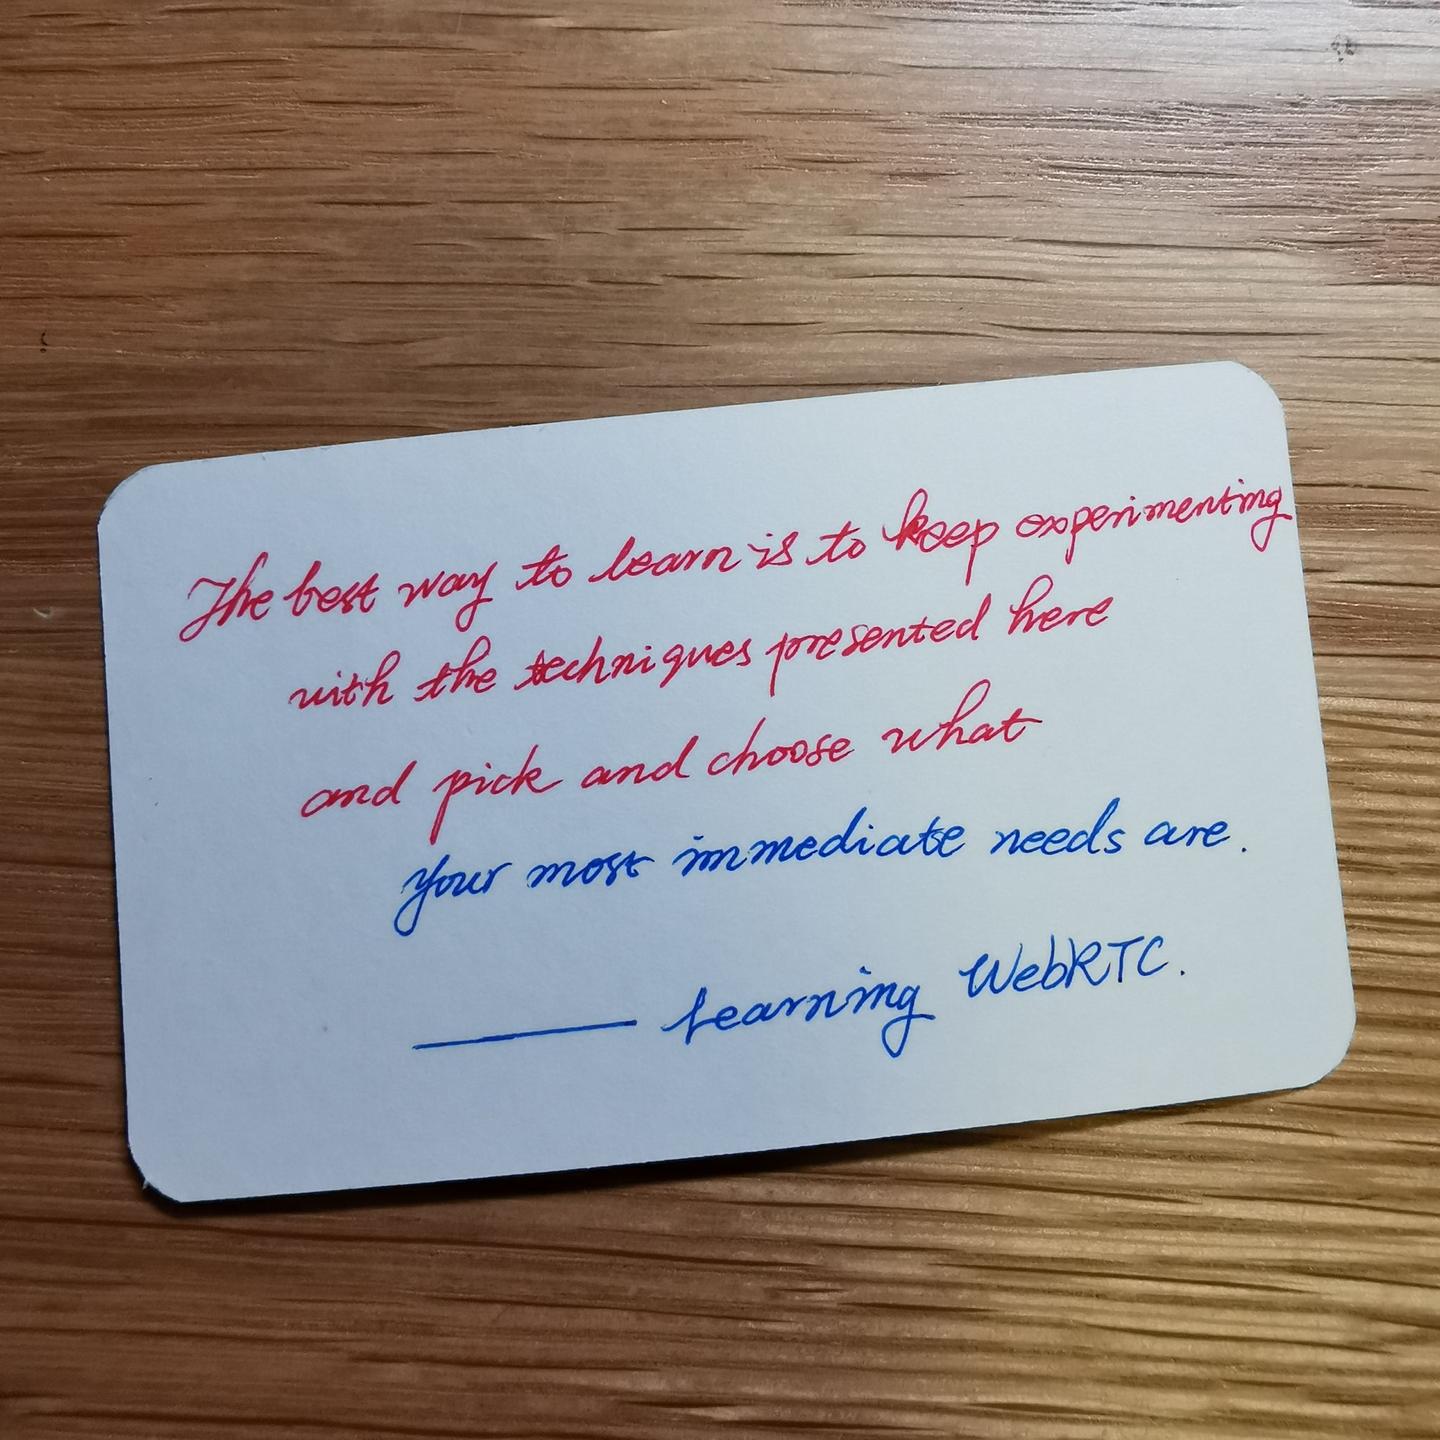 The best way to learn is to keep experimenting
with the techniques presented here
and pick and choose what
your most immediate needs are.
—— Learning WebRTC.